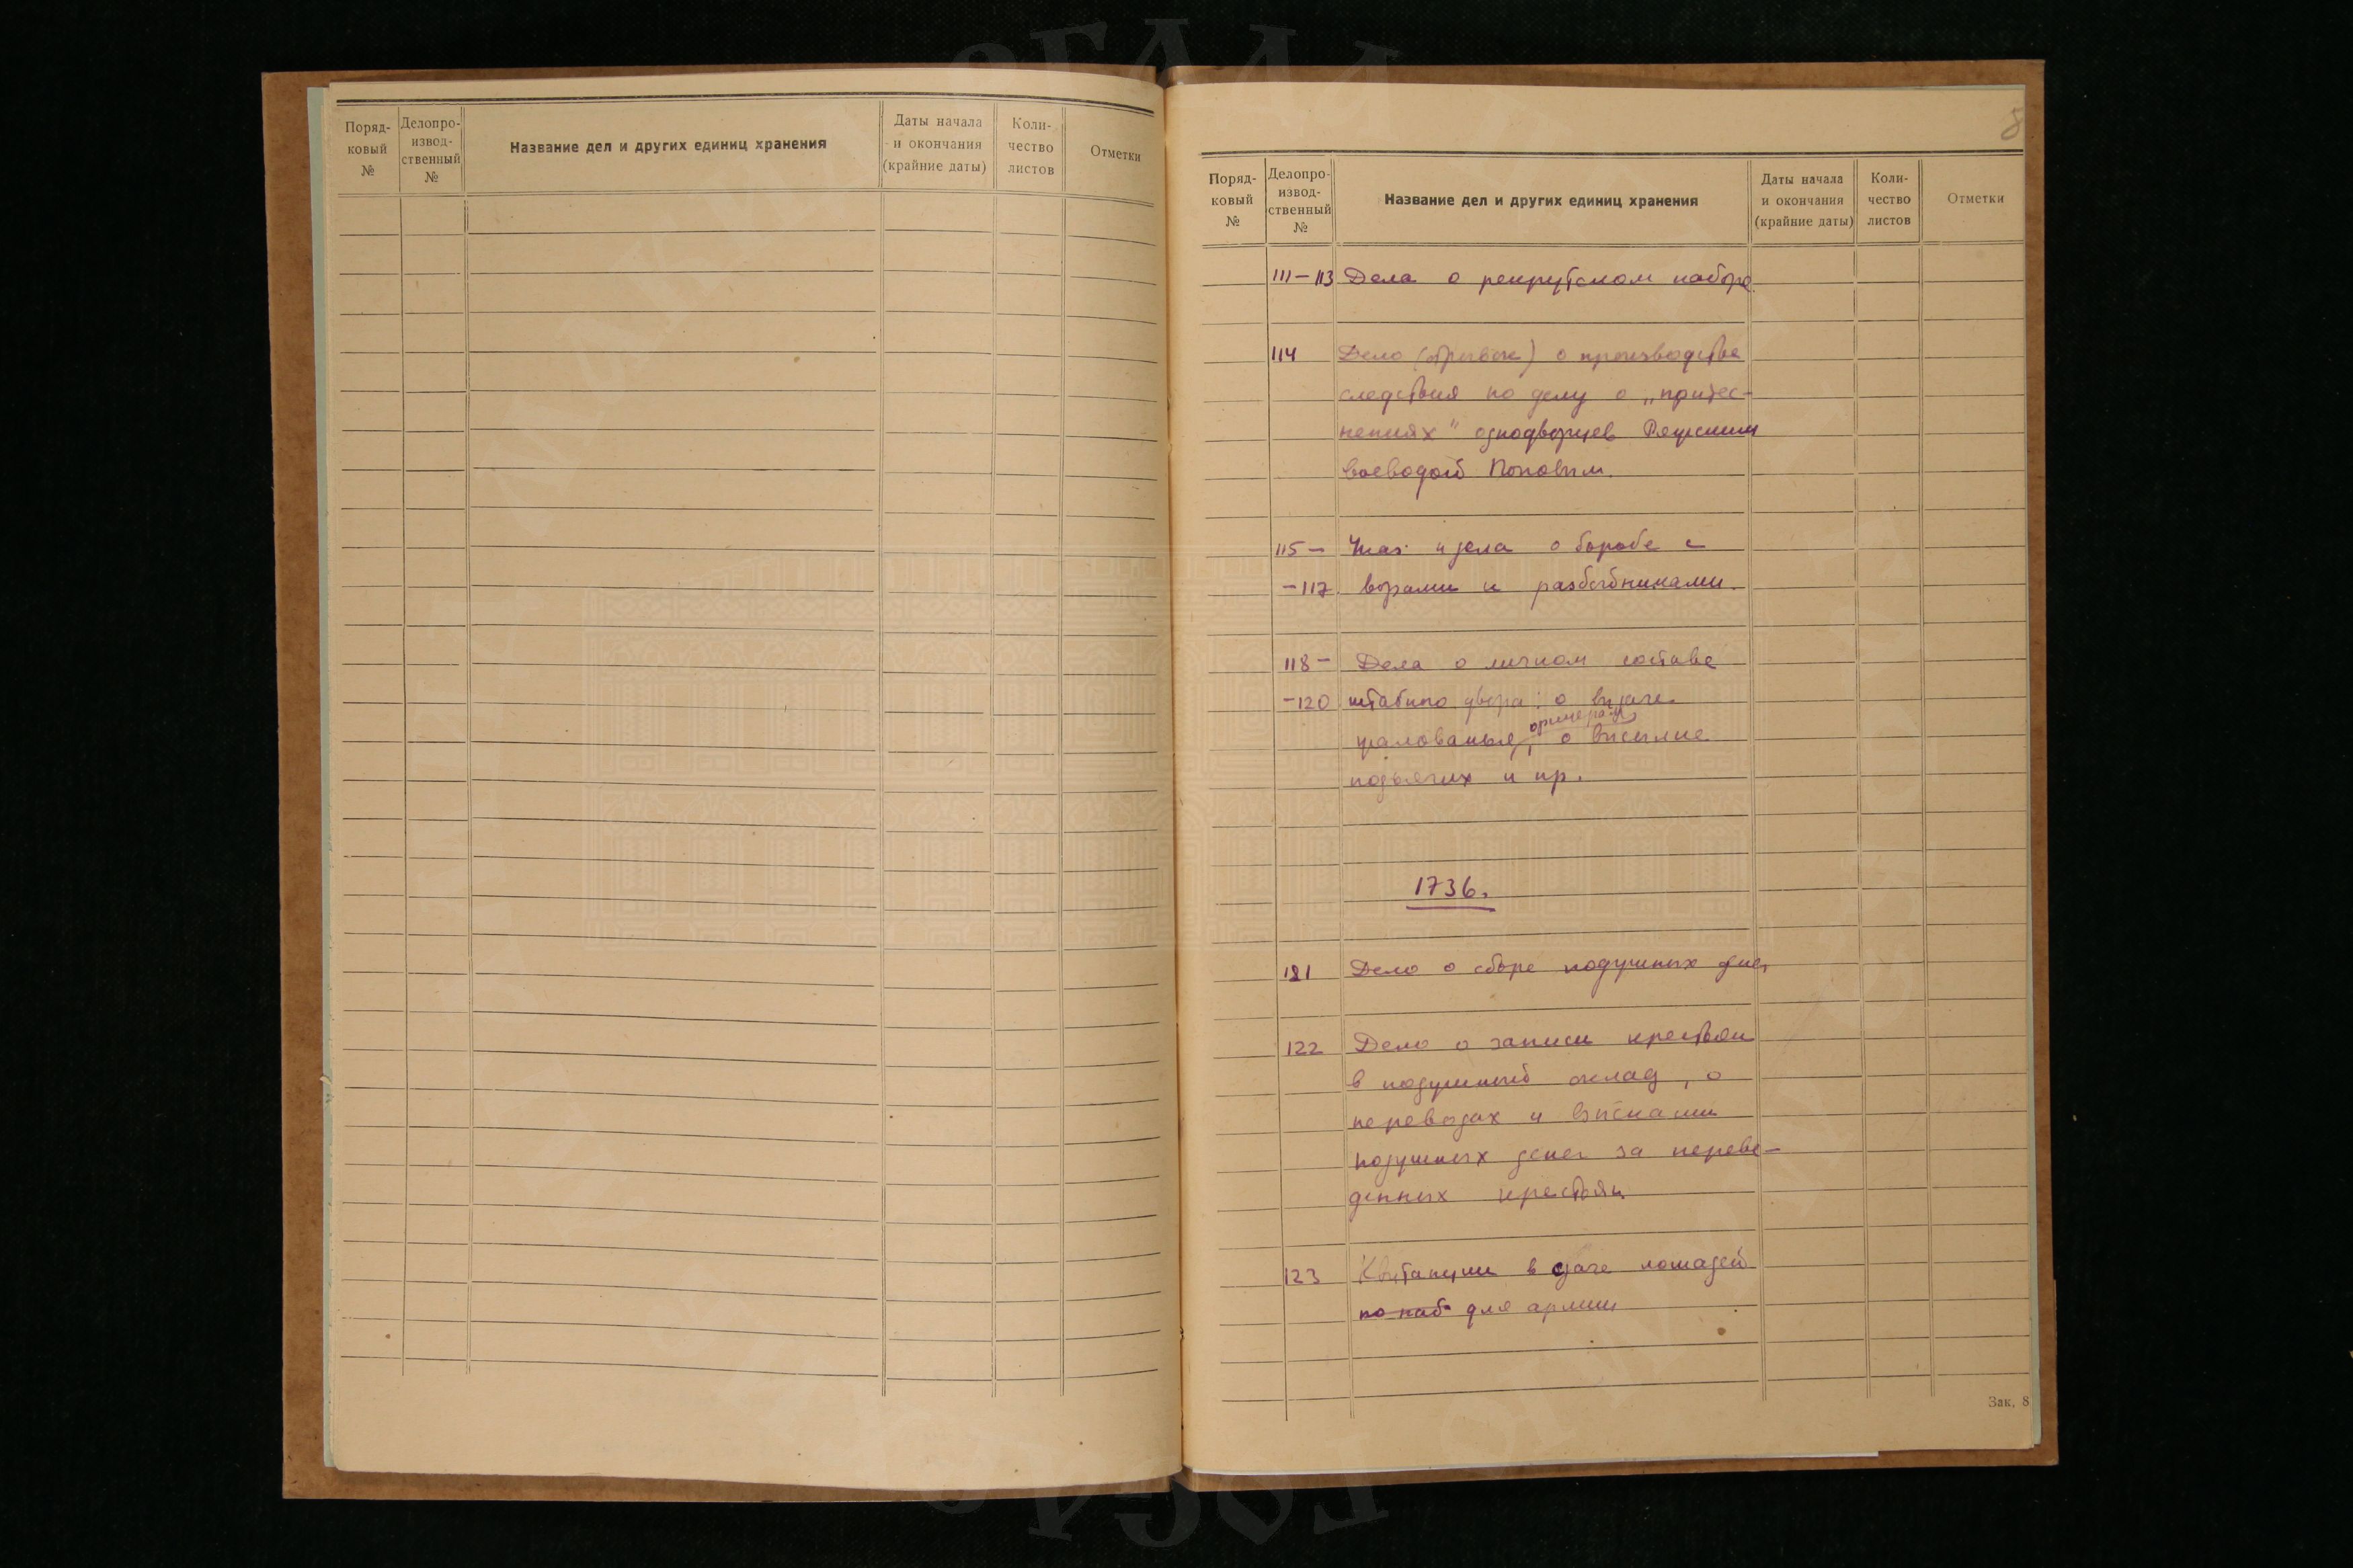 Поряд-
ковый
№
Делопро-
извод-
ственный
№
Название дел и других единиц хранения
Даты начала
и окончания
(крайние даты)
Коли-
чество
листов
Отметки
8
Поряд-
ковый
№
Делопро-
извод-
ственный
№
Название дел и других единиц хранения
Даты начала
и окончания
(крайние даты)
Коли-
чество
листов
Отметки
111–113 Дела о рекрутском наборе.
114 Дело (отрывок) о производстве
следствия по делу о „притес-
нениях“ однодворцев Ряжским
воеводой Поповым.
115– Указ и дела о борьбе с
–117. ворами и разбойниками.
118– Дела о личном составе
–120 штабного двора: о выдаче
офицерам
жалованья, о высылке
подьячих и пр.
1736.
121 Дело о сборе подушных денег
122 Дело о записи крестьян
в подушный оклад, о
переводах и взыскании
подушных денег за переве-
денных крестьян.
123 Квитанции в сдаче лошадей
по наб для армии
Зак. 8